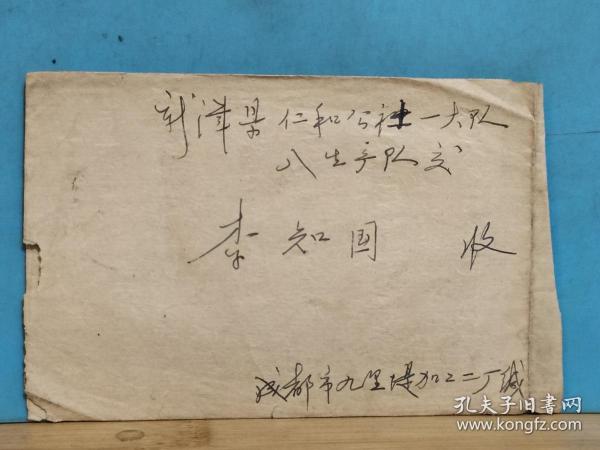 新津县 仁和公社一大队
八生产队交
李知国 收
成都市九里堤加工二厂缄
孔夫子旧书网
www.kongfz.com